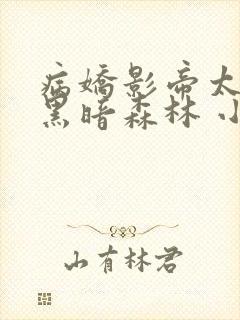 病嬌影帝太
黑暗森林 小
山有林君